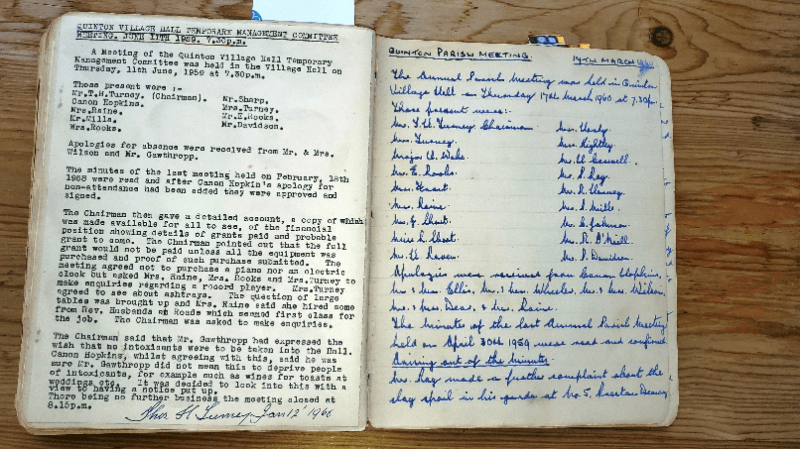 QUINTON VILLAGE HALL TEMPORARY MANAGEMENT COMMITTEE
MEETING. JUNE 11TH 1959. 7.30p.m.
A Meeting of the Quinton Village Hall Temporary
Management Committee was held in the Village Hall on
Thursday, 11th June, 1959 at 7.30p.m.
Those present were :-
Mr.T.H.Turney. (Chairman). Mr.Sharp.
Canon Hopkins. Mrs.Turney.
Mrs.Raine. Mr.E.Rooks.
Mr.Mills. Mr.Davidson.
Mrs.Rooks.
Apologies for absence were received from Mr. & Mrs.
Wilson and Mr. Gawthropp.
The minutes of the last meeting held on February, 18th
1958 were read and after Canon Hopkin's apology for
non-attendance had been added they were approved and
signed.
The Chairman then gave a detailed account, a copy of which
was made available for all to see, of the financial
position showing details of grants paid and probable
grant to come. The Chairman pointed out that the full
grant would not be paid unless all the equipment was
purchased and proof of such purchase submitted. The
meeting agreed not to purchase a piano nor an electric
clock but asked Mrs. Raine, Mrs. Rooks and Mrs.Turney to
make enquiries regarding a record player. Mrs.Turney
agreed to see about ashtrays. The question of large
tables was brought up and Mrs. Raine said she hired some
from Rev. Husbands at Roade which seemed first class for
the job. The Chairman was asked to make enquiries.
The Chairman said that Mr. Gawthropp had expressed the
wish that no intoxicants were to be taken into the Hall.
Canon Hopkins, whilst agreeing with this, said he was
sure Mr. Gawthropp did not mean this to deprive people
of intoxicants, for example such as wines for toasts at
weddings etc. It was decided to look into this with a
view to having a notice put up.
There being no further business the meeting closed at
8.15p.m.
Thos H Turney Jan 12' 1960
QUINTON PARISH MEETING 17TH MARCH
The Annual Parish Meeting was held in Quinton
Village Hall on Thursday 17th March 1960 at 7.30pm.
Those present were:-
Mr. T. H. Turney Chairman
Mrs. Turney. Mrs. Rightley
Major H. Wake.
Mr. E. Rooks. Mr. P. Ray.
Mrs. Raine. Mr. P. Mills
Mr. G. Short.
Miss R. Short. Mr. R. O'Neill
Mr. P. Davidson
Apologies were received from Canon Hopkins,
Mr & Mrs. Ellis. Mr. & Mrs. Wheeler, Mr. & Mrs. Wilson,
Mr. & Mrs. Dear, & Mr. Raine.
The Minutes of the last Annual Parish Meeting
held on April 30th 1959 were read and confirmed
Arising out of the Minutes.
Mr. Ray made a further complaint about the
clay spoil in his garden at No. 5.